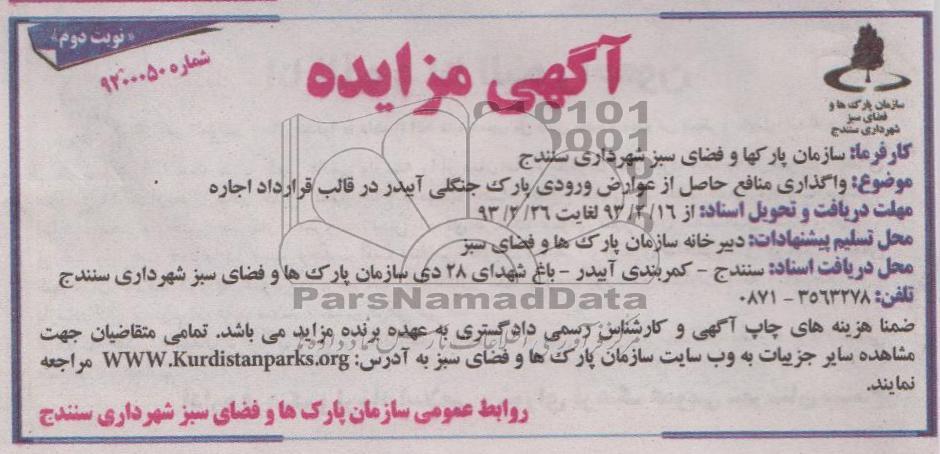 «نوبت دوم»
شماره ۹۲۰۰۰۵۰
آگهی مزایده
سازمان پارک ها و
فضای سبز
شهرداری سنندج
کارفرما: سازمان پارکها و فضای سبز شهرداری سنندج
موضوع: واگذاری منافع حاصل از عوارض ورودی پارک جنگلی آبیدر در قالب قرارداد اجاره
مهلت دریافت و تحویل اسناد: از ۹۳/۲/۱۶ لغایت ۹۳/۲/۲۶
محل تسلیم پیشنهادات: دبیرخانه سازمان پارک ها و فضای سبز
محل دریافت اسناد: سنندج - کمربندی آبیدر - باغ شهدای ۲۸ دی سازمان پارک ها و فضای سبز شهرداری سنندج
تلفن: ۳۵۶۳۲۷۸ - ۰۸۷۱
ParsNamadData
ضمنا هزینه های چاپ آگهی و کارشناس رسمی دادگستری به عهده برنده مزاید می باشد. تمامی متقاضیان جهت
مشاهده سایر جزییات به وب سایت سازمان پارک ها و فضای سبز به آدرس: WWW.Kurdistanparks.org مراجعه
نمایند.
روابط عمومی سازمان پارک ها و فضای سبز شهرداری سنندج